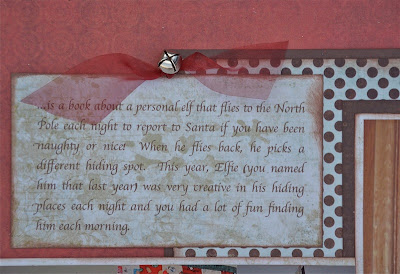 ...is a book about a personal elf that flies to the North
Pole each night to report to Santa if you have been
naughty or nice! When he flies back, he picks a
different hiding spot. This year, Elfie (you named
him that last year) was very creative in his hiding
places each night and you had a lot of fun finding
him each morning.